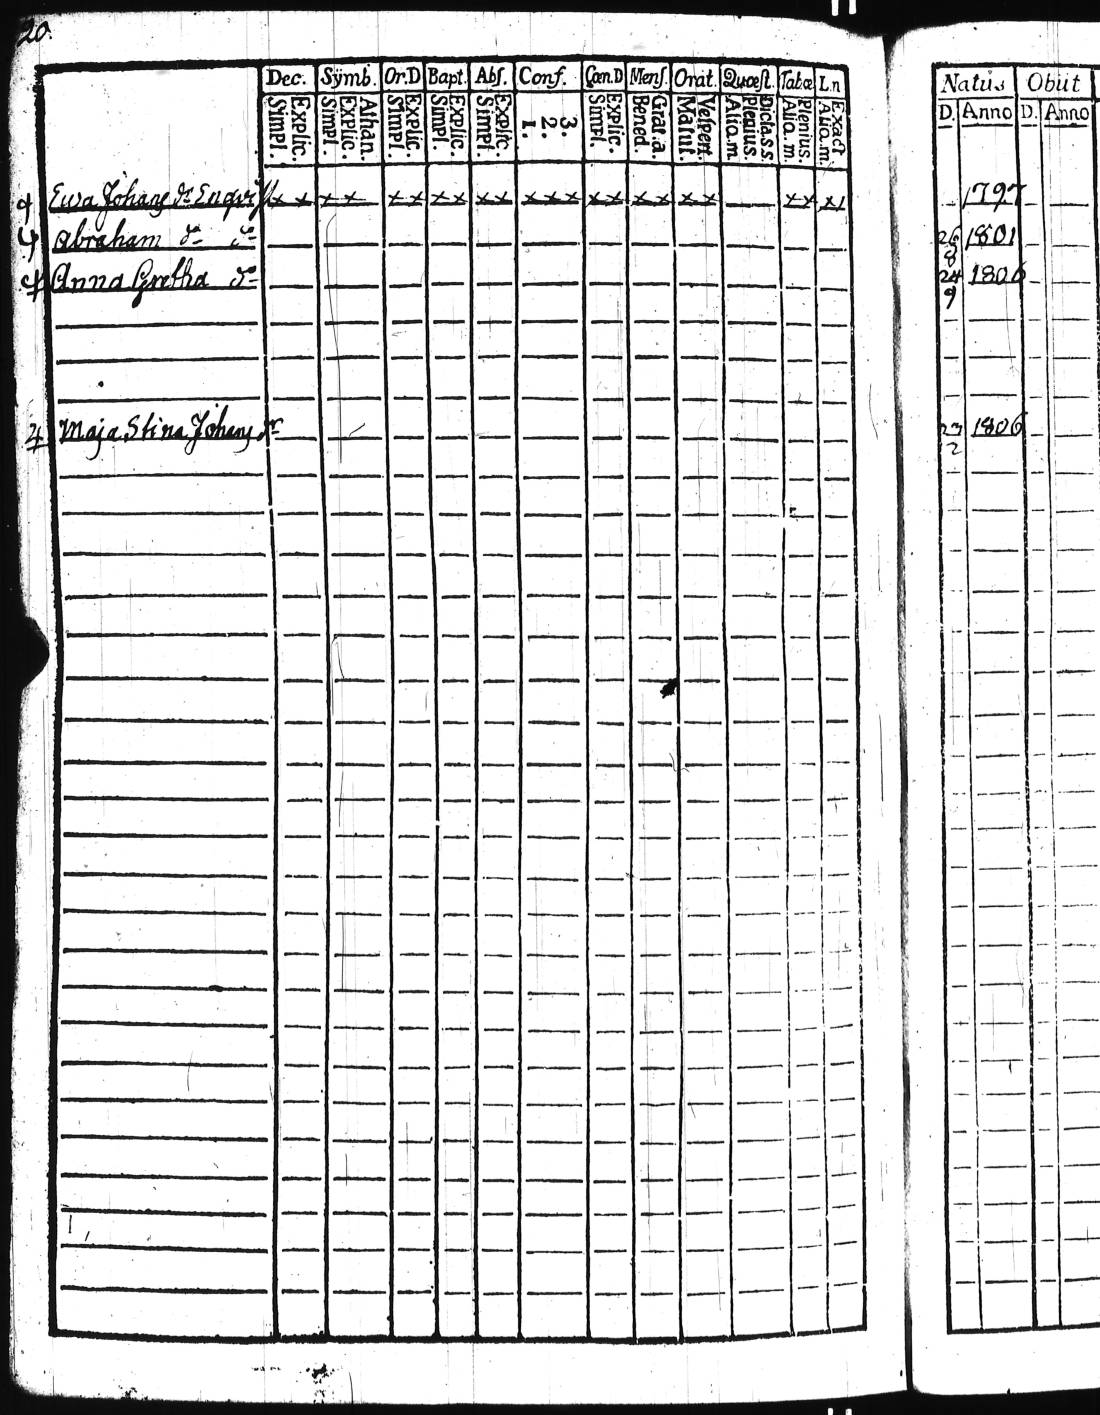 20.
Dec. Symb. Or.D Bapt. Abſ. Conf. Cœn.D Menſ. Orat. Quæſt. Tabæ Ln
Simpl. Explic. Simpl. Explic. Athan. Simpl. Explic. Simpl. Explic. Simpl. Explic. 1. 2. 3. Simpl. Explic. Bened. Grat.a. Matut. Veſpert. Aliq.m Plenius. Dicta.s.s. Aliq.m. Plenius. Aliq.m. Exact
Natus Obiit
D. Anno D. Anno
Ewa Johans dr x x x x x x x x x x x x x x x x x x x x x x x x 1797
Abraham do do 26/8 1801
Anna Gretha do 24/9 1806
Maja Stina Johans dr 23/2 1806